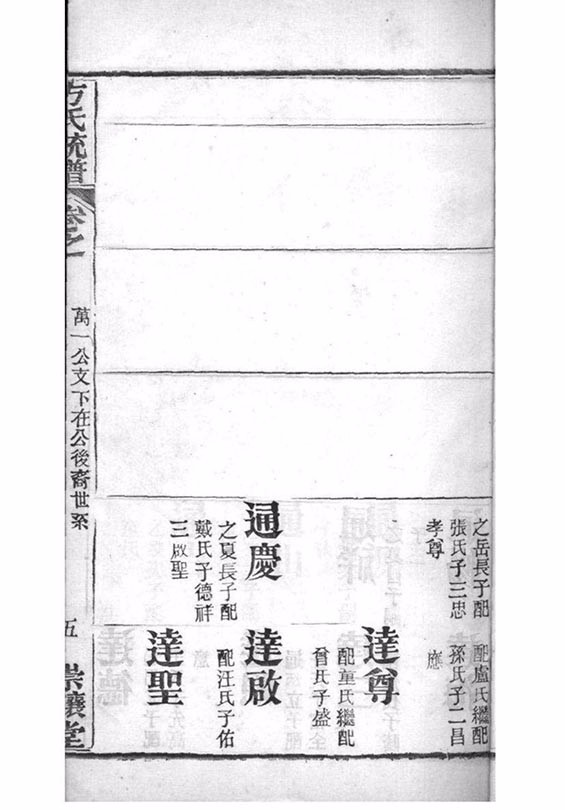 之岳長子配
張氏子三忠
孝尊
通慶
之夏長子配
戴氏子德祥
三啟聖
配盧氏繼配
孫氏子二昌
應
達尊
配童氏繼配
曾氏子盛
達啟
配汪氏子佑
達聖
方氏統譜
卷之一
萬一公支下在公後裔世系
五
崇讓堂